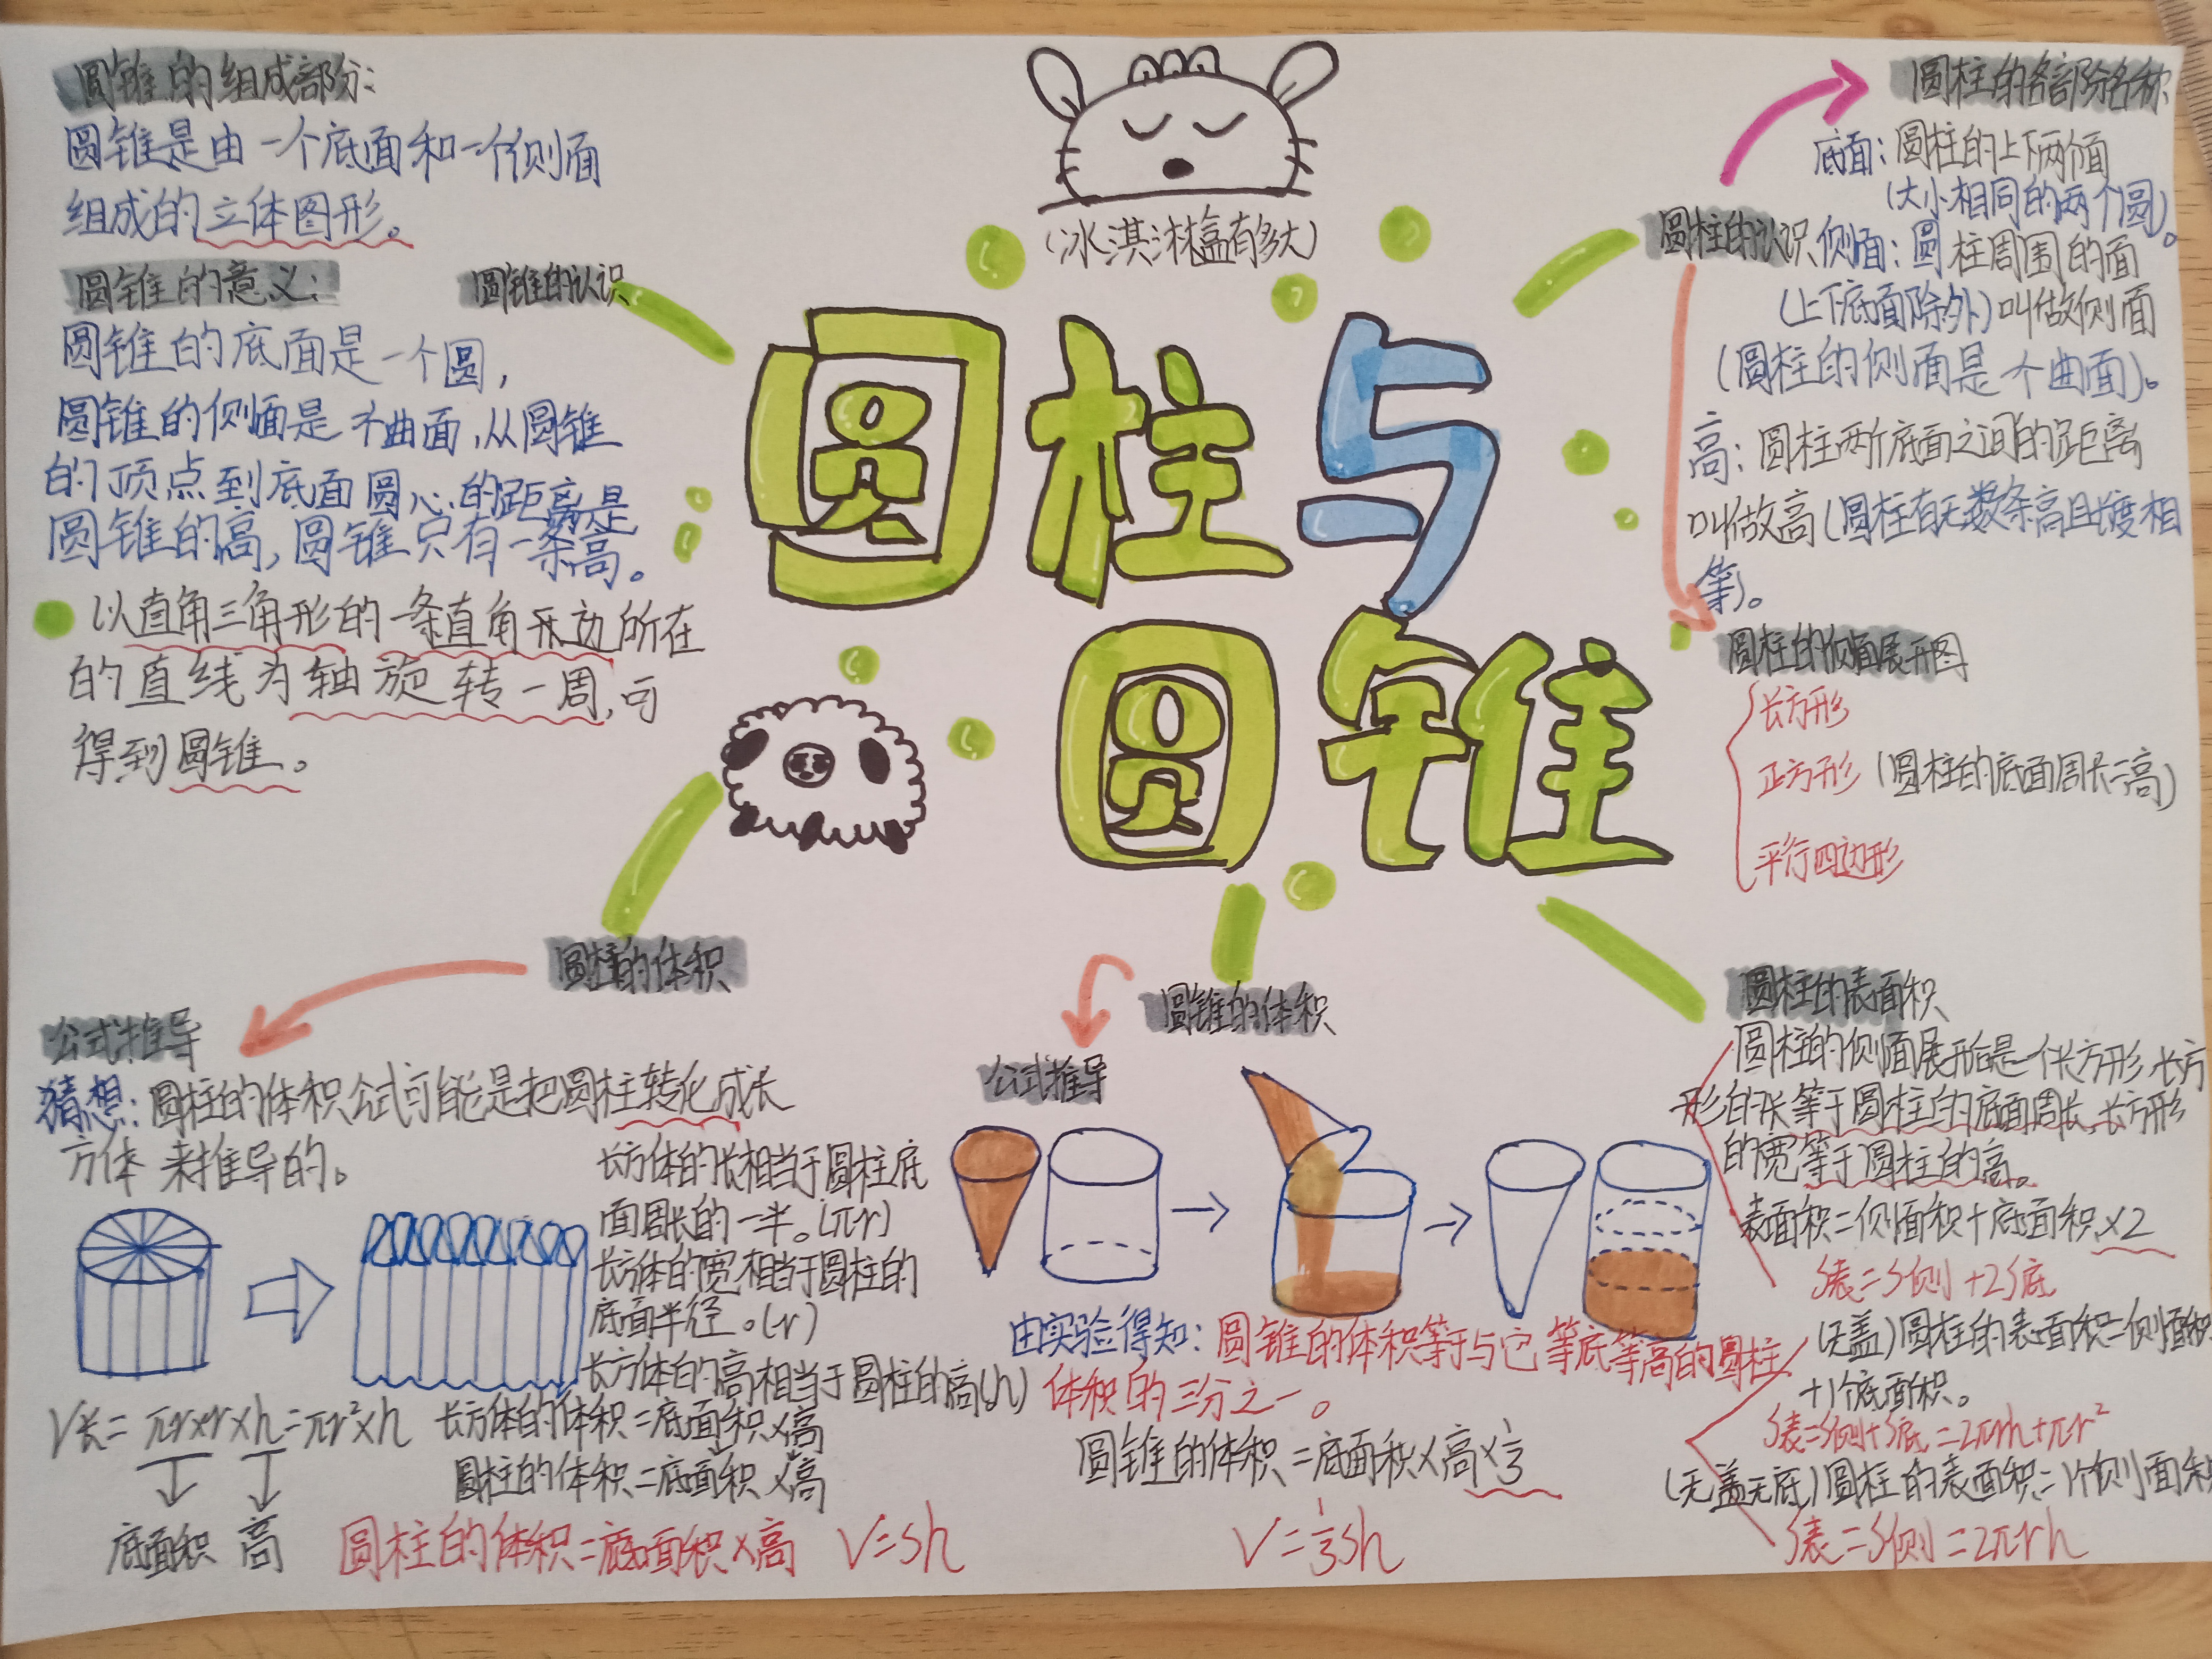 圆锥的组成部分：
圆锥是由一个底面和一个侧面
组成的立体图形。
圆锥的意义：
圆锥的认识
圆锥的底面是一个圆，
圆锥的侧面是个曲面，从圆锥
的顶点到底面圆心的距离是
圆锥的高，圆锥只有一条高。
以直角三角形的一条直角边所在
的直线为轴旋转一周，可
得到圆锥。
（冰淇淋盒有多大）
圆柱与
圆锥
圆柱的各部分名称
底面：圆柱的上下两个面
（大小相同的两个圆）。
圆柱的认识
侧面：圆柱周围的面
（上下底面除外）叫做侧面
（圆柱的侧面是个曲面）。
高：圆柱两个底面之间的距离
叫做高（圆柱有无数条高且长度相
等）。
圆柱的侧面展开图
长方形
正方形（圆柱的底面周长=高）
平行四边形
圆柱的体积
公式推导
猜想：圆柱的体积公式可能是把圆柱转化成长
方体来推导的。
长方体的长相当于圆柱底
面周长的一半。(πr)
长方体的宽相当于圆柱的
底面半径。(r)
长方体的高相当于圆柱的高(h)
V长=πr×r×h=πr²×h
长方体的体积=底面积×高
圆柱的体积=底面积×高
底面积 高
圆柱的体积=底面积×高 V=Sh
圆锥的体积
公式推导
由实验得知：圆锥的体积等于与它等底等高的圆柱
体积的三分之一。
圆锥的体积=底面积×高×⅓
V=⅓Sh
圆柱的表面积
圆柱的侧面展开后是一个长方形，长方
形的长等于圆柱的底面周长，长方形
的宽等于圆柱的高。
表面积=侧面积+底面积×2
S表=S侧+2S底
（无盖）圆柱的表面积=侧面积
+1个底面积。
S表=S侧+S底=2πrh+πr²
（无盖无底）圆柱的表面积=1个侧面积
S表=S侧=2πrh